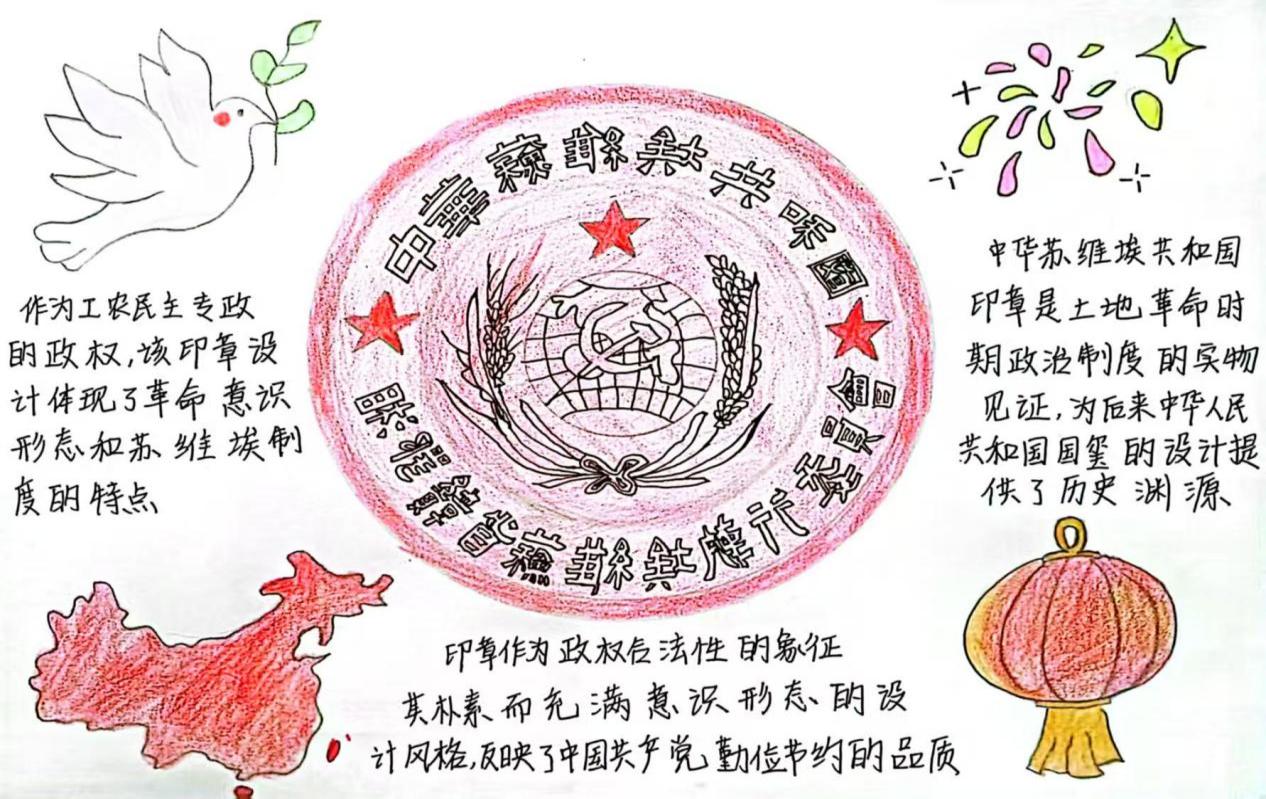 中華蘇維埃共和國
省蘇維埃執行委員會
作为工农民主专政
的政权,该印章设
计体现了革命意识
形态和苏维埃制
度的特点
中华苏维埃共和国
印章是土地革命时
期政治制度的实物
见证,为后来中华人民
共和国国玺的设计提
供了历史渊源
印章作为政权合法性的象征
其朴素而充满意识形态的设
计风格,反映了中国共产党勤俭节约的品质